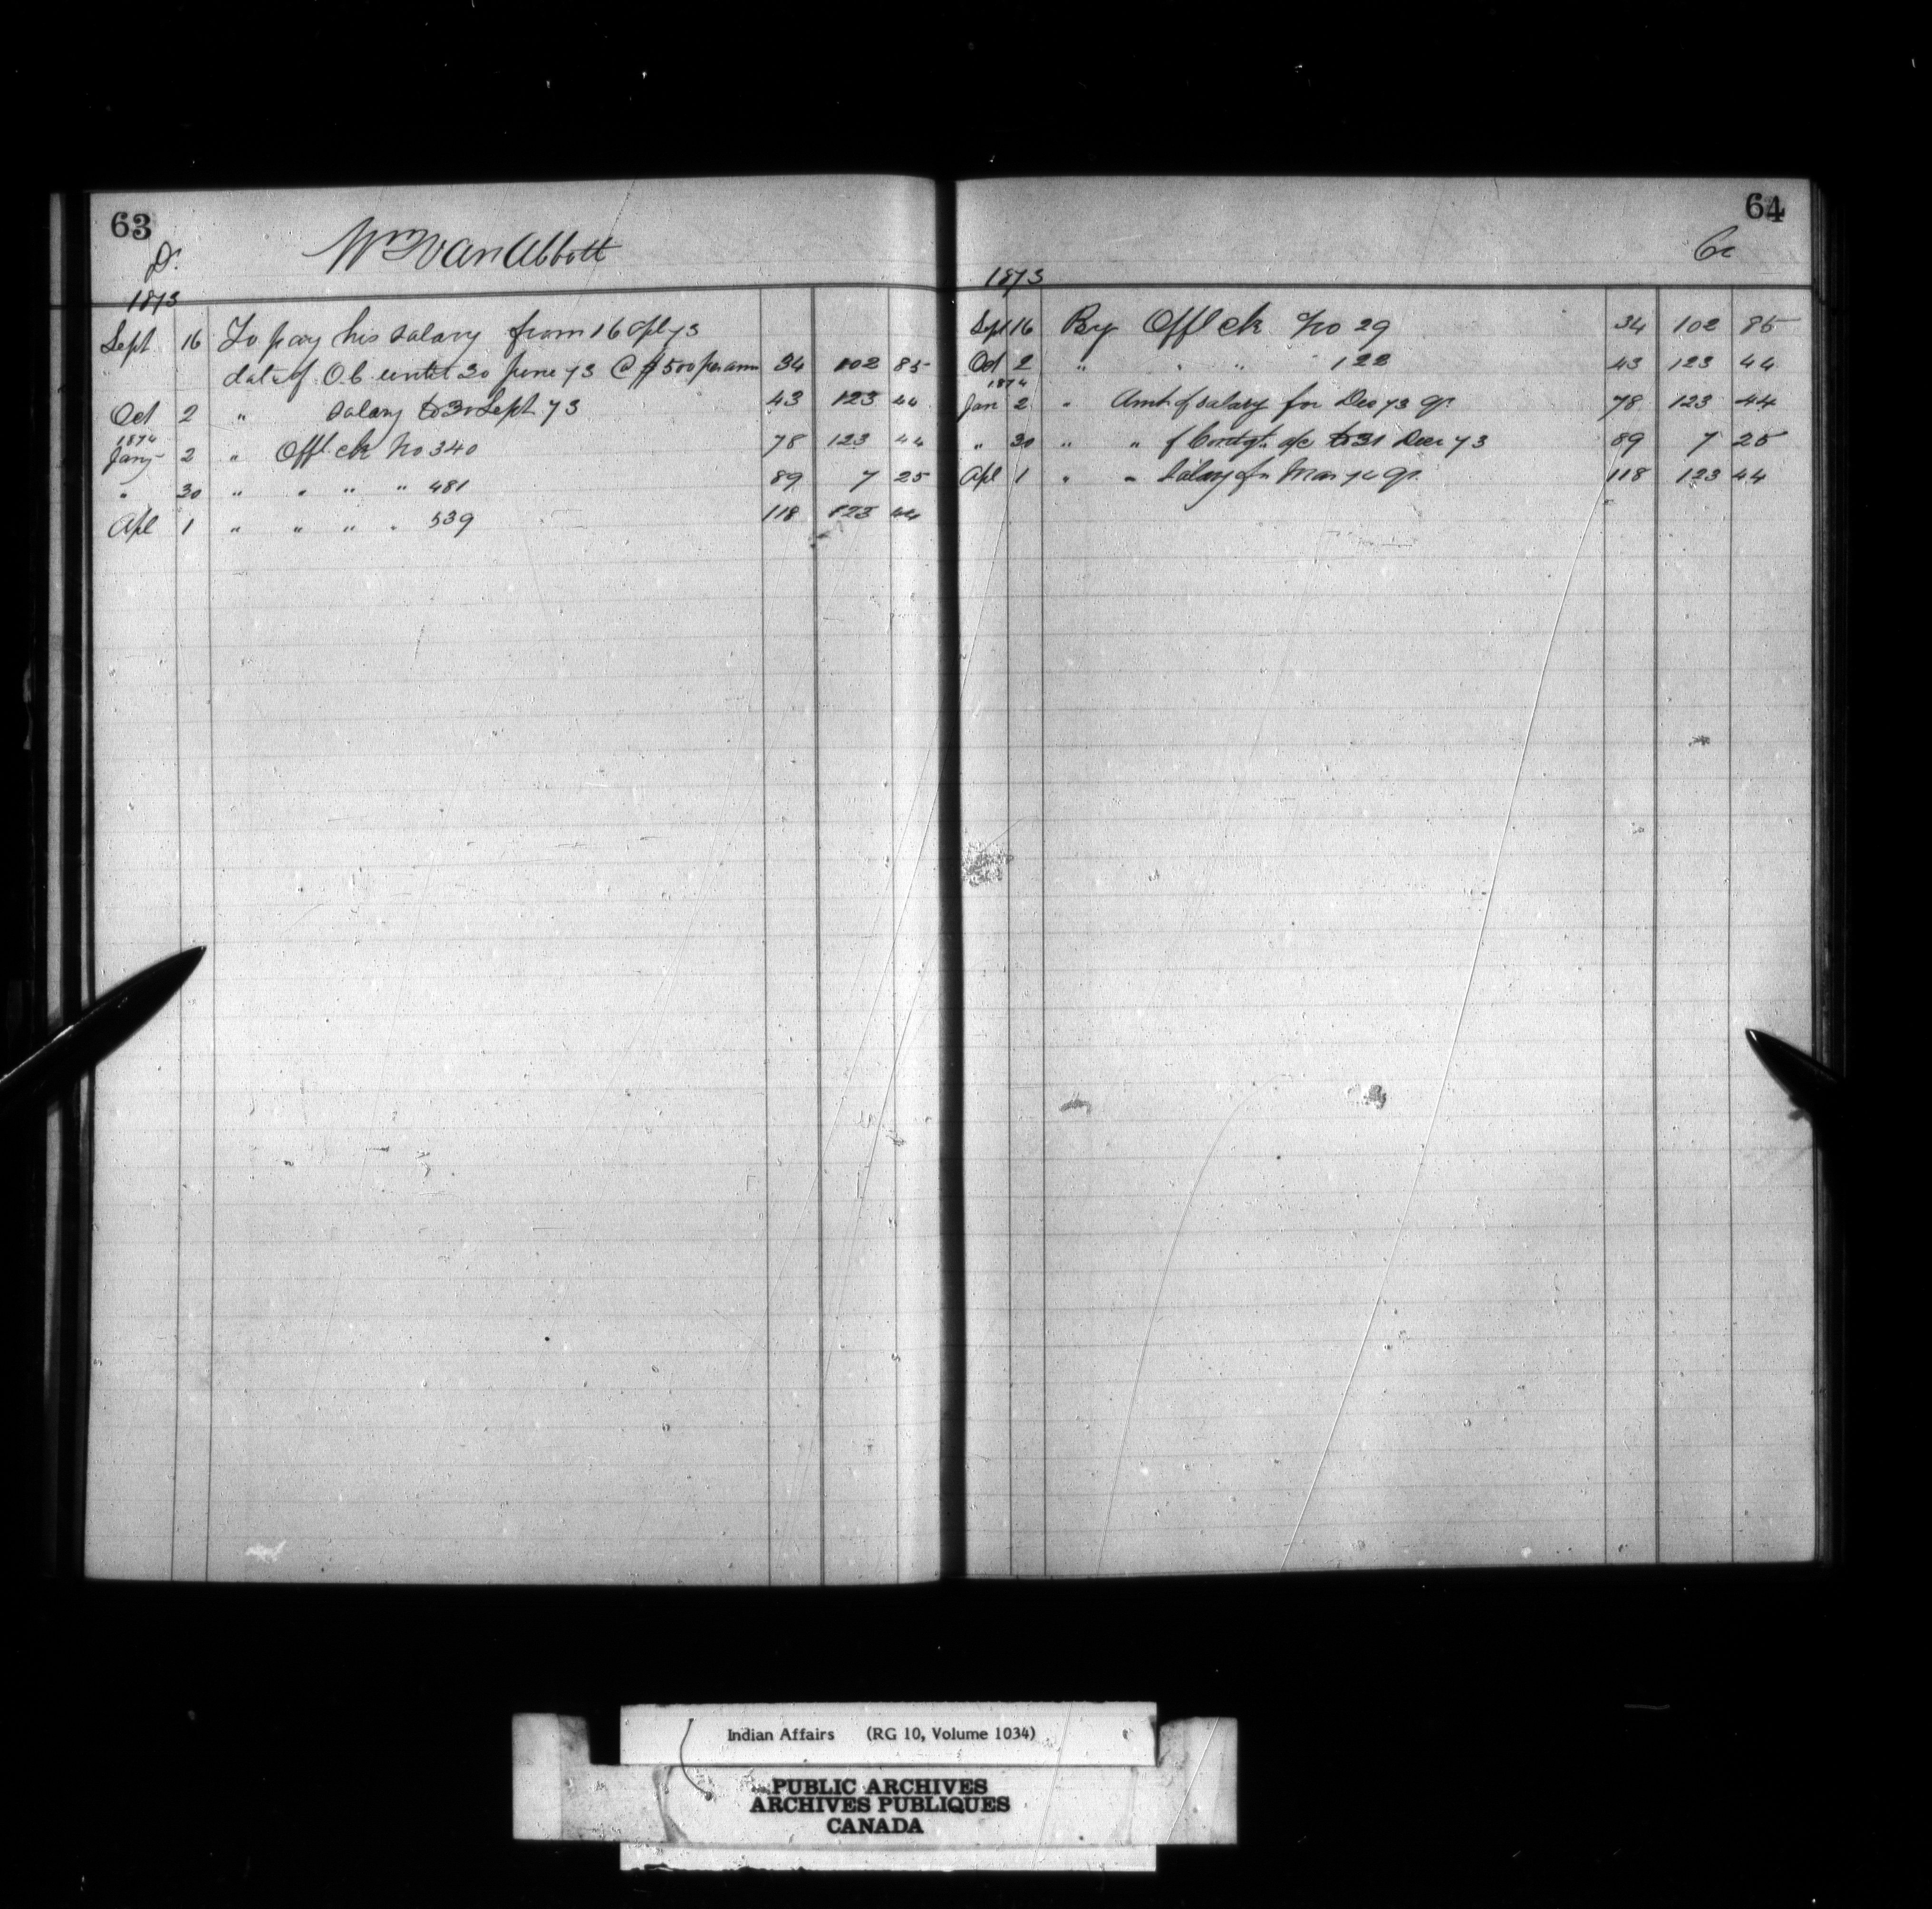 63
Dr.
Wm Van Abbott
1873
Sept 16 To pay his salary from 16 Apl 73
date of O.C. until 30 June 73 @ $500 per ann 34 102 85
Oct 2 " salary to 30 Sept 73 43 123 44
1874
Jany 2 " Offl. ck No 340 78 123 44
" 30 " " " " 481 89 7 25
Apl 1 " " " " 539 118 123 44
64
Cr
1873
Sept 16 By Offl ck No 29 34 102 85
Oct 2 " " " 122 43 123 44
1874
Jan 2 " Amt. of salary for Dec 73 qr. 78 123 44
" 30 " " of Contgt. a/c to 31 Decr 73 89 7 25
Apl 1 " " Salary for Mar 74 qr. 118 123 44
Indian Affairs (RG 10, Volume 1034)
PUBLIC ARCHIVES
ARCHIVES PUBLIQUES
CANADA